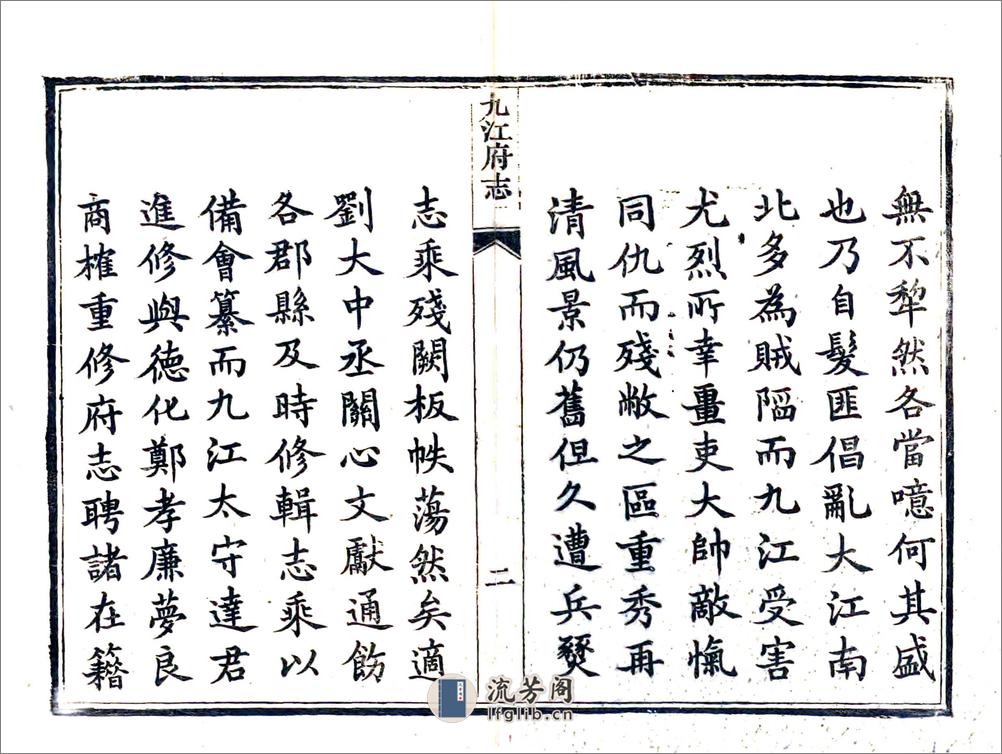 無不犂然各當噫何其盛
也乃自髮匪倡亂大江南
北多為賊陷而九江受害
尤烈所幸畺吏大帥敵愾
同仇而殘敝之區重秀再
清風景仍舊但久遭兵燹
九江府志
二
志乘殘闕板帙蕩然矣適
劉大中丞關心文獻通飭
各郡縣及時修輯志乘以
備會纂而九江太守達君
進修與德化鄭孝廉夢良
商榷重修府志聘諸在籍
流芳阁
lfglib.cn